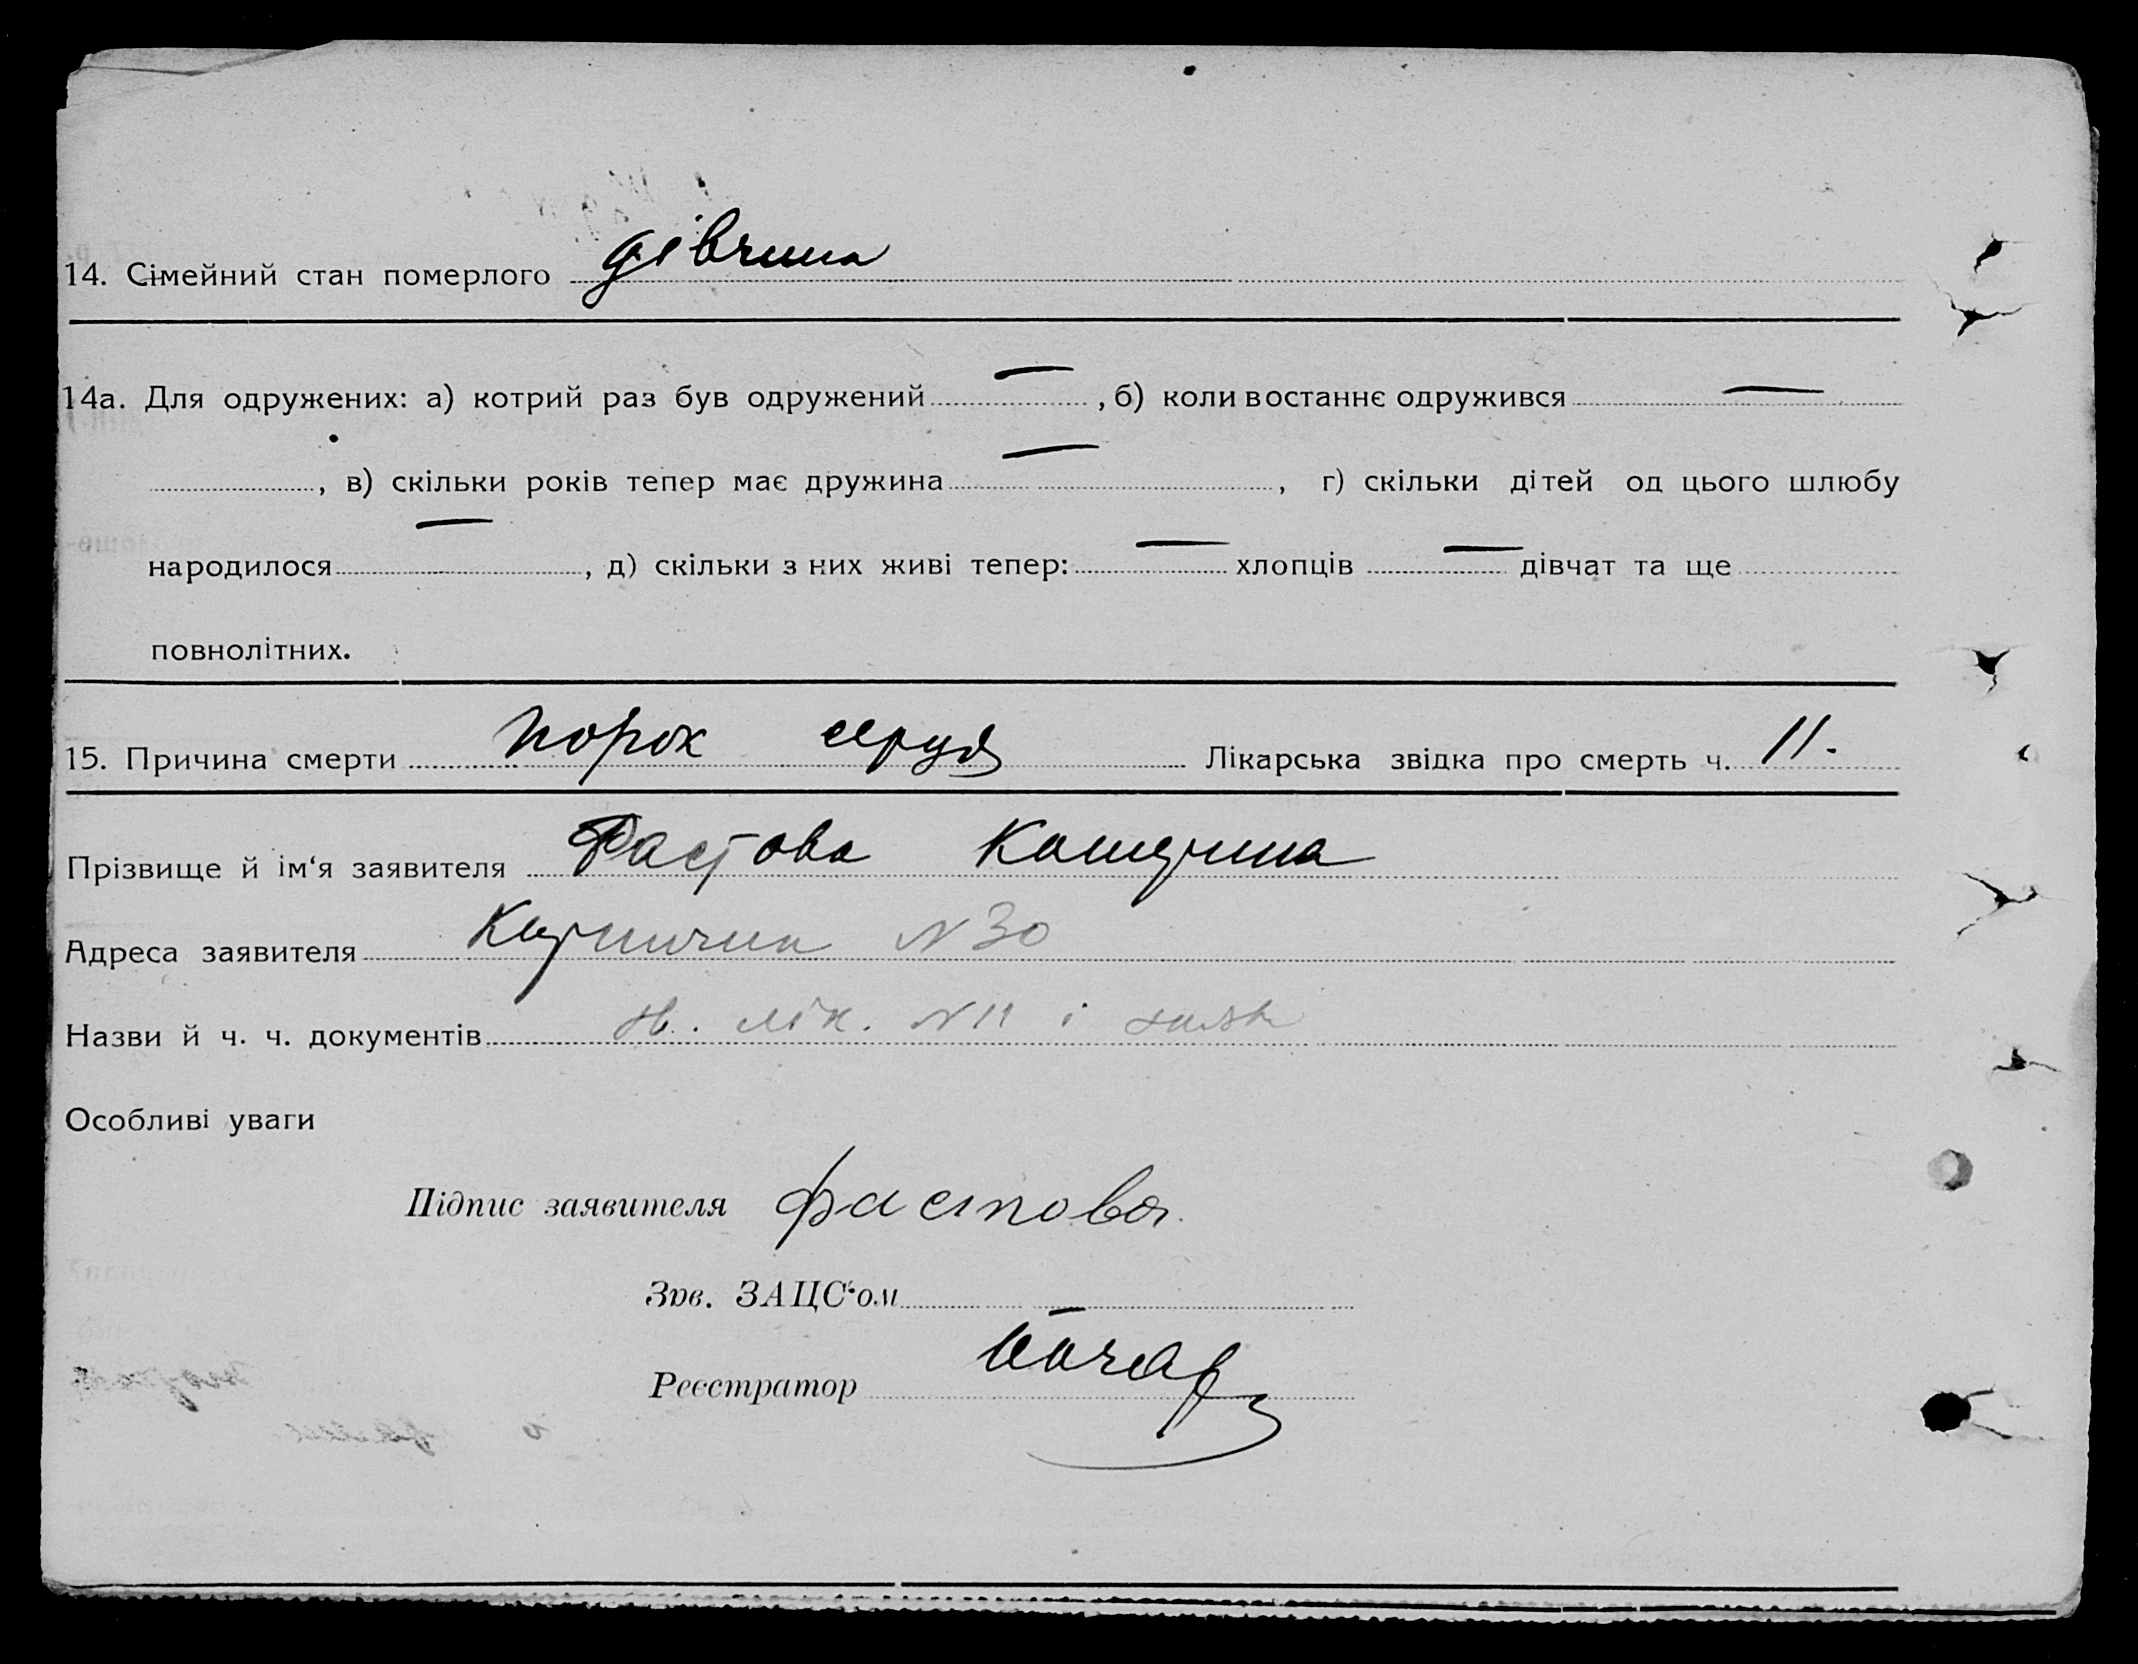 14. Сімейний стан померлого дівчина
14а. Для одружених: а) котрий раз був одружений — , б) коли востаннє одружився —
, в) скільки років тепер має дружина — , г) скільки дітей од цього шлюбу
народилося — , д) скільки з них живі тепер: — хлопців — дівчат та ще
повнолітних.
15. Причина смерти порок серця Лікарська звідка про смерть ч. 11.
Прізвище й ім‘я заявителя Фастова
Адреса заявителя N 30
Назви й ч. ч. документів лік. N 11 і
Особливі уваги
Підпис заявителя Фастова
Зав. ЗАЦС‘ом —
Реєстратор